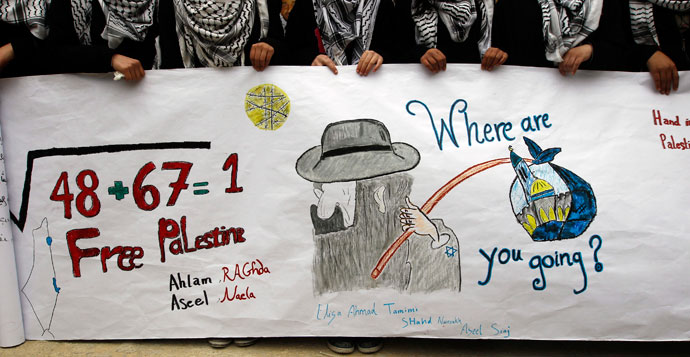 48+67=1
Free Palestine
Ahlam RAGhda
Aseel Naela
Where are
you going?
Eliga Ahmad Tamimi
Shahd
Aseel Siraj
Hand in
Palesti